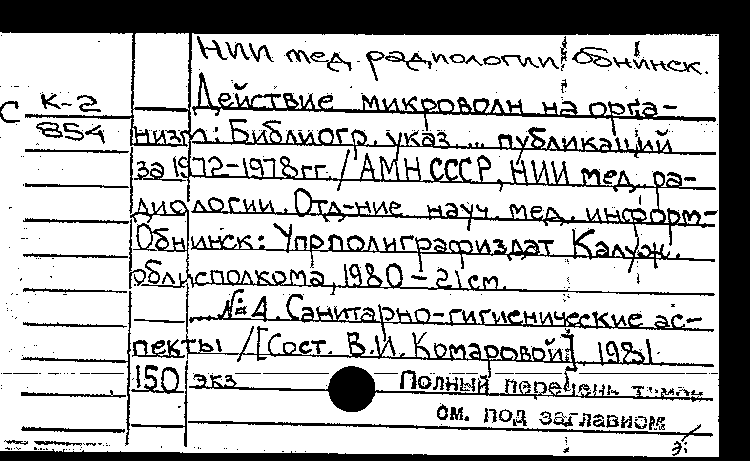 НИИ мед. радиологии Обнинск.
С К-2
854
Действие микроволн на орга-
низм: Библиогр. указ ... публикаций
за 1972-1978 гг. / АМН СССР, НИИ мед. ра-
диологии. Отд-ние науч. мед. информ.-
Обнинск: Упрполиграфиздат Калуж.
облисполкома, 1980 - 21 см.
№ 4. Санитарно-гигиенические ас-
пекты / [Сост. В.И. Комаровой]. 1981.
150 экз
Полный перечень томов
см. под заглавием